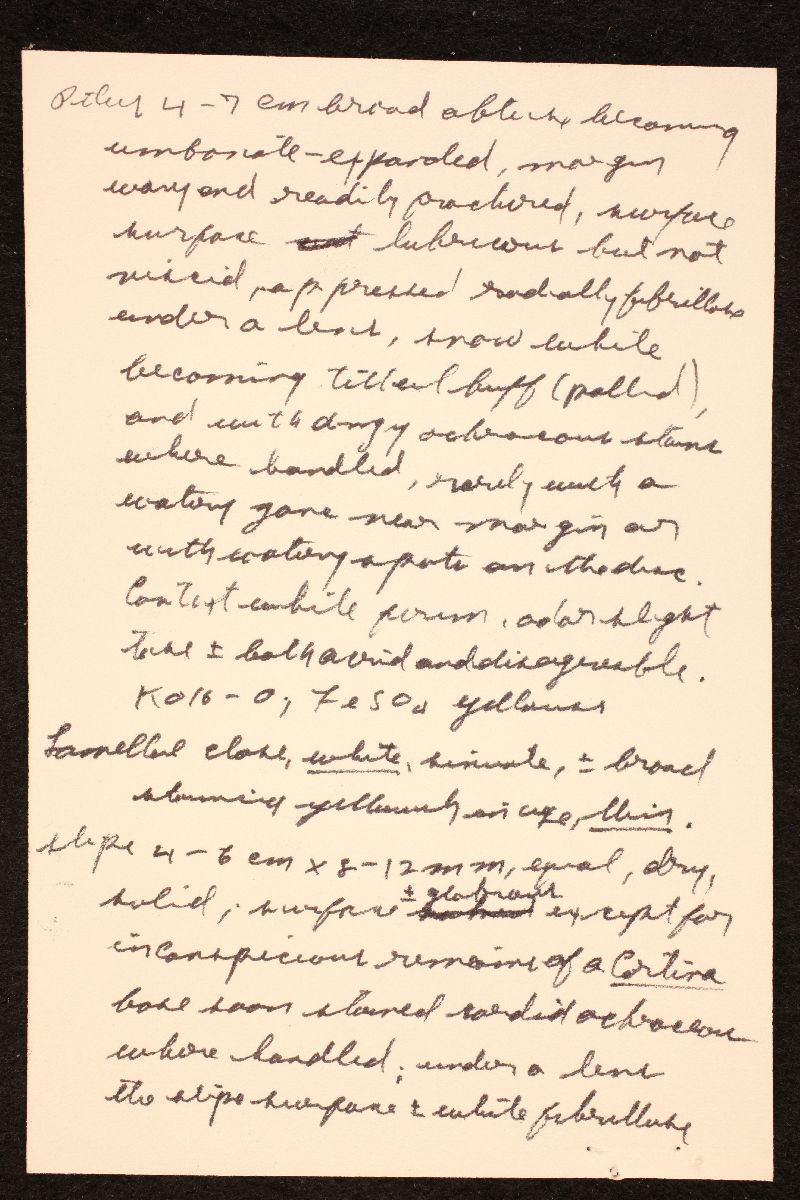 Pileus 4-7 cm broad obtuse becoming
umbonate-expanded, margin
wavy and readily fractured, surface
surface lubricous but not
viscid, appressed radially fibrillose
under a lens, snow white
becoming tilleul buff (pallid),
and with dingy ochraceous stains
where handled, rarely with a
watery zone near margin or
with watery spots on the disc.
Context white firm, odor slight
taste ± both acrid and disagreeable.
KOH - O; FeSO4 yellowish
Lamellae close, white, sinuate, ± broad
staining yellowish in age, thin.
stipe 4-6 cm x 8-12 mm, equal, dry,
solid; surface ± glabrous except for
inconspicious remains of a Cortina
base soon stained sordid ochraceous
where handled; under a lens
the stipe surface ± white fibrillose